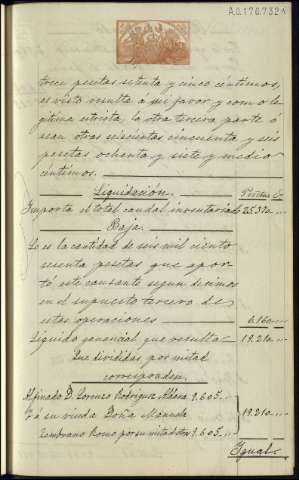 A.0.176.732
trece pesetas setenta y cinco céntimos,
es visto resulta a su favor y como le
gitima estricta, la otra tercera parte ó
sean otras seiscientas cincuenta y seis
pesetas ochenta y siete y medio
céntimos.
Liquidación. Pesetas Cs
Importa el total caudal inventariado 25.370
Baja.
Lo es la cantidad de seis mil ciento
sesenta pesetas que apor
tó este causante segun decimos
en el supuesto tercero de
estas operaciones 6.160
Líquido ganancial que resulta 19.210
Que divididas por mitad
corresponden.
Al finado D. Lorenzo Rodriguez 9.605
Y á su viuda Doña Manuela 19.210
Zambrano Romo por su mitad otras 9.605
Igual.